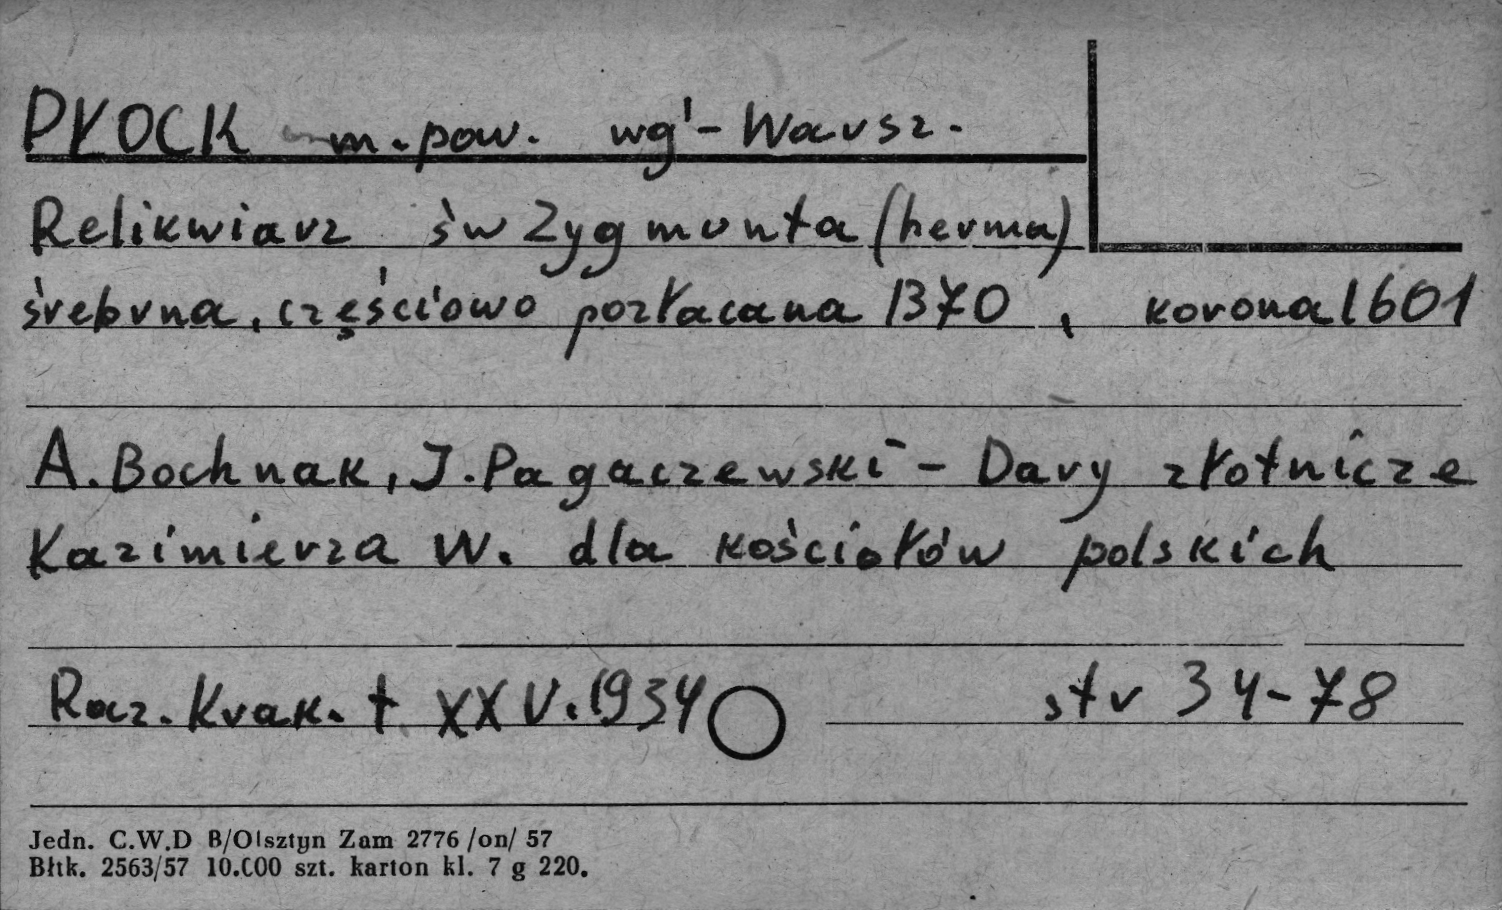 PŁOCK m. pow. wg - Warsz.
Relikwiarz św Zygmunta (herma)
śrebrna, częściowo pozłacana 1370, korona 1601
A. Bochnak, J. Pagaczewski - Dary złotnicze
Kazimierza W. dla kościołów polskich
Rocz. Krak. t XXV. 1934 str 34-78
Jedn. C.W.D B/Olsztyn Zam 2776 /on/ 57
Błtk. 2563/57 10.000 szt. karton kl. 7 g 220.